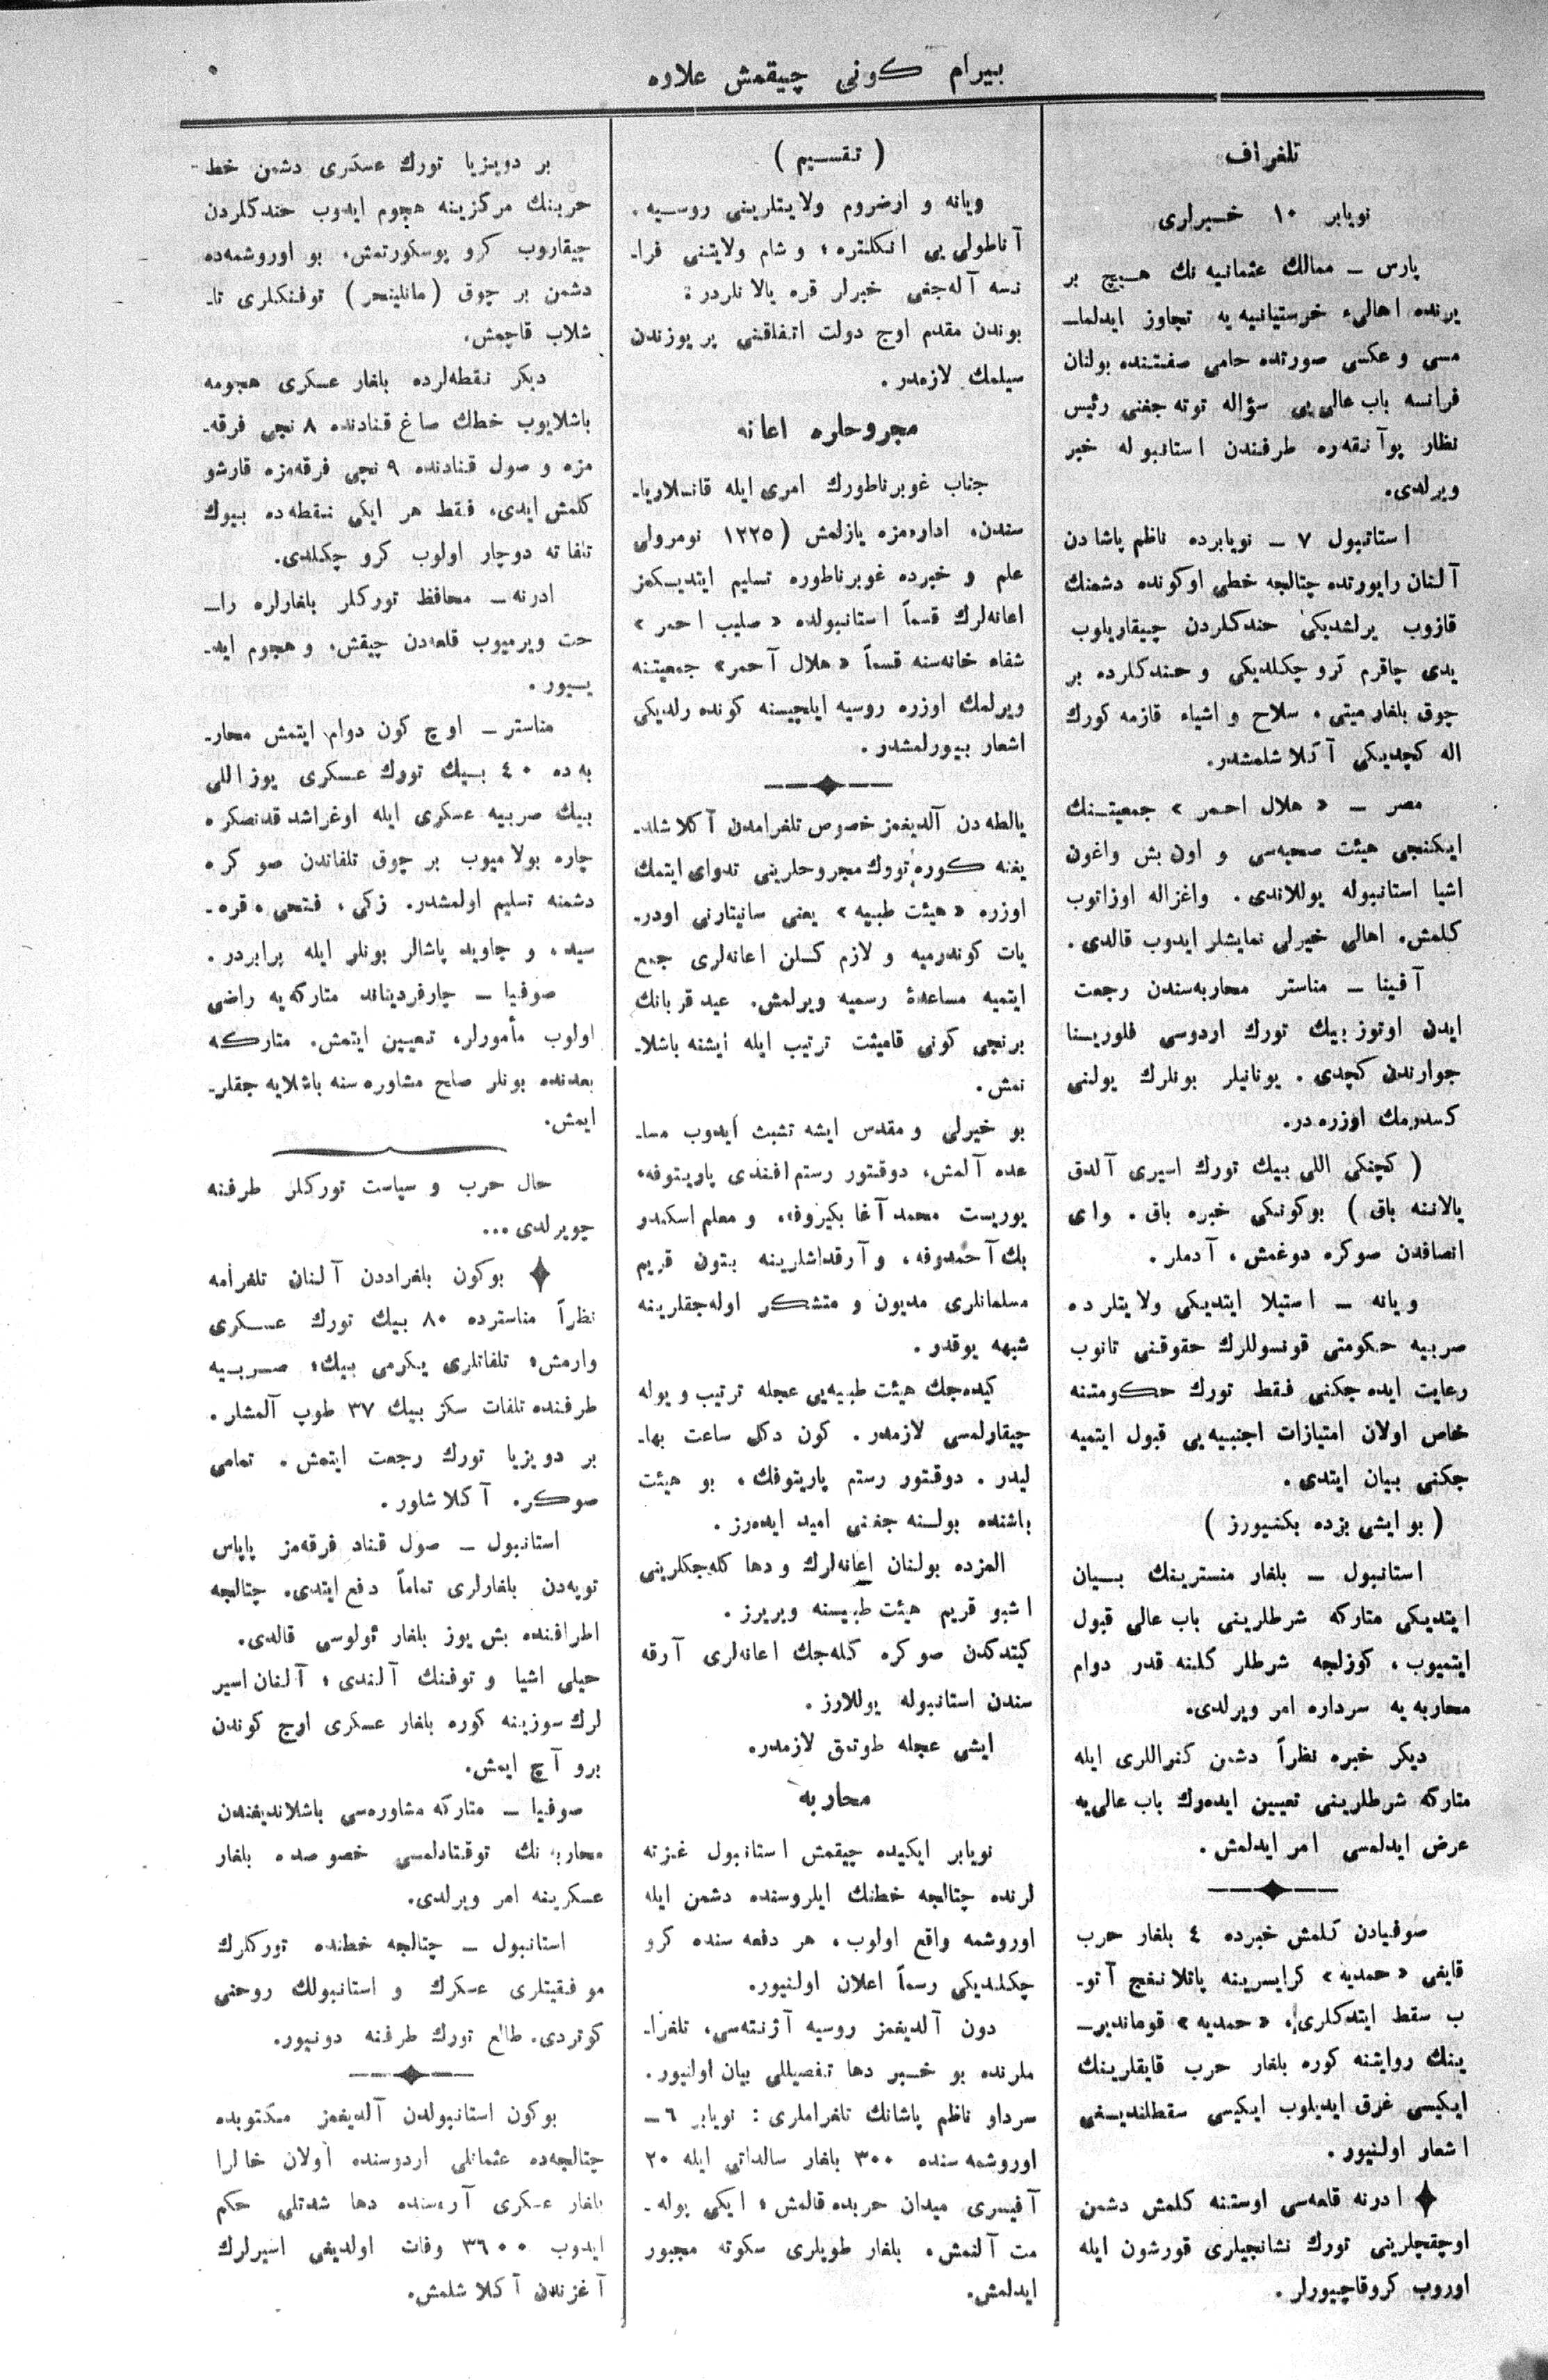 بيرام كونى چيقمش علاوه
تلغراف
نويابر ١٠ خبرلرى
پارس ـ ممالك عثمانيه نك هيچ بر
يرنده اهالىء خرستيانيه يه تجاوز ايدلما-
مسى و عكسى صورتده حامى صفتنده بولنان
فرانسه باب عالى يى سؤاله توته جغنى رئيس
نظار پوآنقه‌ره طرفندن استانبوله خبر
ويرلدى.
استانبول ٧ ـ نويابرده ناظم پاشا دن
آلنان راپورتده چتالجه خطى اوكونده دشمنك
قازوب يرلشديكى خندكلردن چيقاريلوب
يدى چاقرم كرو چكلديكى و خندكلرده بر
چوق بلغار ميتى، سلاح و اشياء قازمه كورك
اله كچديكى آكلاشلمشدر.
مصر ـ «هلال احمر» جمعيتنك
ايكنجى هيئت صحيه‌سى و اون بش واغون
اشيا استانبوله يوللاندى. واغزاله اوزاتوب
كلمش. اهالى خيرلى نمايشلر ايدوب قالدى.
آفينا ـ مناستر محاربه‌سندن رجعت
ايدن اوتوز بيك تورك اردوسى فلورينا
جوارندن كچدى. يونانيلر بونلرك يولنى
كسدرمك اوزره در.
( كچنكى اللى بيك تورك اسيرى آلدق
يالاننه باق ) بوكونكى خبره باق. واى
انصافدن صوكره دوغمش، آدملر.
ويانه ـ استيلا ايتديكى ولايتلرده
صربيه حكومتى قونسوللرك حقوقنى تانوب
رعايت ايده جكنى فقط تورك حكومتنه
خاص اولان امتيازات اجنبيه‌يى قبول ايتميه
جكنى بيان ايتدى.
( بو ايشى بزده بكنيورز )
استانبول ـ بلغار منسترينك بيان
ايتديكى متاركه شرطلرينى باب عالى قبول
ايتميوب، كوزلجه شرطلر كلنه قدر دوام
محاربه يه سرداره امر ويرلدى.
ديكر خبره نظراً دشمن كنراللرى ايله
متاركه شرطلرينى تعيين ايده‌رك باب عالى‌يه
عرض ايدلمسى امر ايدلمش.
صوفيادن كلمش خبرده ٤ بلغار حرب
قايغى «حمديه» كرايسرينه پاتلانغج آتو-
ب سقط ايتدكلرى، «حمديه» قوماندير-
ينك روايتنه كوره بلغار حرب قايقلرينك
ايكيسى غرق ايديلوب ايكيسى سقطلنديغى
اشعار اولنيور.
ادرنه قلعه‌سى اوستنه كلمش دشمن
اوچقچلرينى تورك نشانجيلرى قورشون ايله
اوروب كروقاچيورلر.
( تقسيم )
ويانه و ارضروم ولايتلرينى روسيه.
آناطولى يى انكلتره؛ و شام ولايتنى فرا-
نسه آله‌جغى خبرلر قره يالانلردر؛
بوندن مقدم اوچ دولت اتفاقنى ير يوزندن
سيلمك لازمدر.
مجروحلره اعانه
جناب غوبرناطورك امرى ايله قانسلاريا-
سندن، اداره‌مزه يازلمش (١٢٢٥ نومرولى
علم و خبرده غوبرناطوره تسليم ايتديكمز
اعانه‌لرك قسماً استانبولده «صليب احمر»
شفاء خانه‌سنه قسماً «هلال آحمر» جمعيتنه
ويرلمك اوزره روسيه ايلچيسنه كونده رلديكى
اشعار بيورلمشدر.
يالطه‌دن آلديغمز خصوص تلغرامدن آكلاشلد-
يغنه كوره تورك مجروحلرينى تدواى ايتمك
اوزره «هيئت طبيه» يعنى سانيتارنى اودر-
يات كوندرميه و لازم كلن اعانه‌لرى جمع
ايتميه مساعدۀ رسميه ويرلمش. عيد قربانك
برنجى كونى قاميتت ترتيب ايله ايشنه باشلا-
نمش.
بو خيرلى و مقدس ايشه تشبث ايدوب مسا-
عده آلمش، دوقتور رستم افندى پاريتوفه،
يوريست محمد آغا بكيروفه، و معلم اسكندر
بك آحمدوفه، و آرقداشلرينه بتون قريم
مسلمانلرى مديون و متشكر اوله‌جقلرينه
شبهه يوقدر.
كيده‌جك هيئت طبيه‌يى عجله ترتيب و يوله
چيقارلمسى لازمدر. كون دكل ساعت بها-
ليدر. دوقتور رستم پاريتوفك، بو هيئت
باشنده بولنه جغنى اميد ايده‌رز.
المزده بولنان اعانه‌لرك و دها كله‌جكلرينى
اشبو قريم هيئت طبيسنه ويريرز.
كيتدكدن صوكره كله‌جك اعانه‌لرى آرقه
سندن استانبوله يوللارز.
ايشى عجله طوتمق لازمدر.
محاربه
نويابر ايكيده چيقمش استانبول غزته
لرنده چتالجه خطنك ايلروسنده دشمن ايله
اوروشمه واقع اولوب، هر دفعه سنده كرو
چكلديكى رسماً اعلان اولنيور.
دون آلديغمز روسيه آژنته‌سى، تلغرا-
ملرنده بو خبر دها تفصيللى بيان اولنيور.
سردار ناظم پاشانك تلغراملرى : نويابر ٦ـ
اوروشمه سنده ٣٠٠ بلغار سالداتى ايله ٢٠
آفيسرى ميدان حربده قالمش؛ ايكى پوله-
مت آلنمش. بلغار طوپلرى سكوته مجبور
ايدلمش.
بر دويزيا تورك عسكرى دشمن خط-
حربنك مركزينه هجوم ايدوب خندكلردن
چيقاروب كرو پوسكورتمش، بو اوروشمه‌ده
دشمن بر چوق (مانليخر) توفنكلرى تا-
شلاب قاچمش.
ديكر نقطه‌لرده بلغار عسكرى هجومه
باشلايوب خطك صاغ قنادنده ٨ نجى فرقه-
مزه و صول قنادنده ٩ نجى فرقه‌مزه قارشو
كلمش ايدى، فقط هر ايكى نقطه‌ده بيوك
تلفاته دوچار اولوب كرو چكلدى.
ادرنه ـ محافظ توركلر بلغارلره را-
حت ويرميوب قلعه‌دن چيقش، و هجوم ايد-
يبور.
مناستر ـ اوچ كون دوام ايتمش محار-
به ده ٤٠ بيك تورك عسكرى يوز اللى
بيك صربيه عسكرى ايله اوغراشدقدنصكره
چاره بولاميوب بر چوق تلفاتدن صوكره
دشمنه تسليم اولمشدر. زكى، فتحى، قره-
سيد، و جاويد پاشالر بونلر ايله برابردر.
صوفيا ـ چارفرديناند متاركه يه راضى
اولوب مأمورلر، تعيين ايتمش. متاركه
بعدنده بونلر صلح مشاوره سنه باشلايه جقلر-
ايمش.
حال حرب و سياست توركلر طرفنه
چويرلدى...
بوكون بلغراددن آلنان تلغرامه
نظراً مناسترده ٨٠ بيك تورك عسكرى
وارمش؛ تلفاتلرى يكرمى بيك؛ صربيه
طرفنده تلفات سكز بيك ٣٧ طوپ آلمشلر.
بر دويزيا تورك رجعت ايتمش. تمامى
صوكره آكلاشلور.
استانبول ـ صول قناد فرقه‌مز پاپاس
توپه‌دن بلغارلرى تماماً دفع ايتدى. چتالجه
اطرافنده بش يوز بلغار ئولوسى قالدى.
خيلى اشيا و توفنك آلندى؛ آلنان اسير
لرك سوزينه كوره بلغار عسكرى اوچ كوندن
برو آچ ايمش.
صوفيا ـ متاركه مشاوره‌سى باشلانديغندن
محاربه نك توقتادلمسى خصوصده بلغار
عسكرينه امر ويرلدى.
استانبول ـ چتالجه خطنده توركلرك
موفقيتلرى عسكرك و استانبولك روحنى
كوتردى. طالع تورك طرفنه دونيور.
بوكون استانبولدن آلديغمز مكتوبده
چتالجه‌ده عثمانلى اردوسنده اولان خالرا
بلغار عسكرى آره‌سنده دها شدتلى حكم
ايدوب ٣٦٠٠ وفات اولديغى اسيرلرك
آغزندن آكلاشلمش.